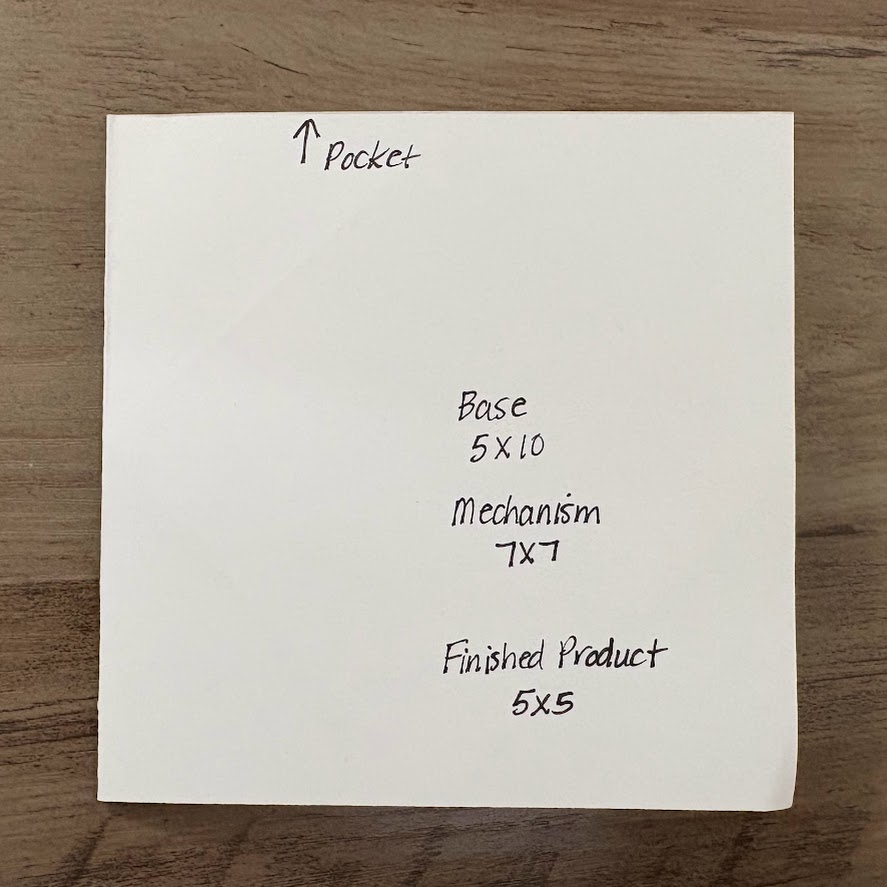 ↑ Pocket
Base
5X10
Mechanism
7X7
Finished Product
5X5